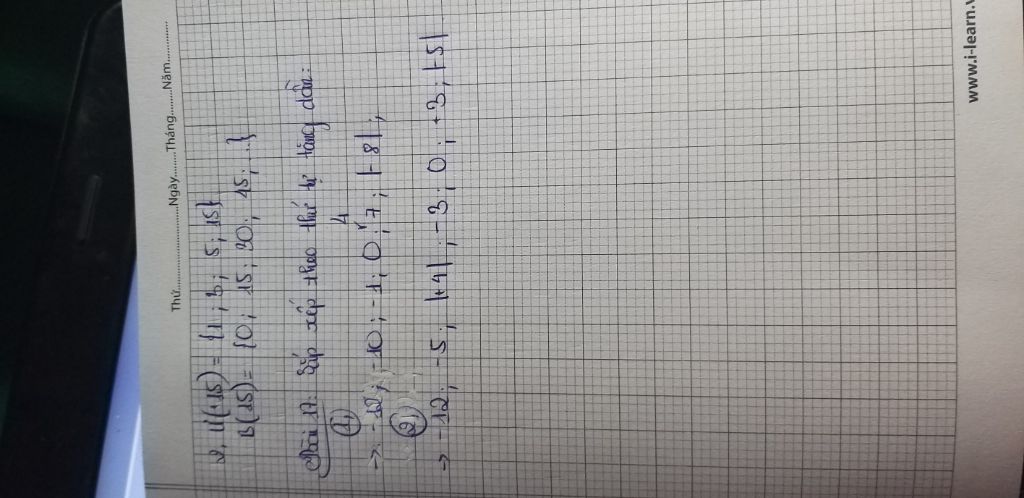 Thứ..................Ngày.........Tháng.........Năm............
2, Ư(15) = {1 ; 3 ; 5 ; 15}
B(15) = {0 ; 15 ; 30 ; 45 ; ...}
Bài 17: Sắp xếp theo thứ tự tăng dần:
1,
4
→ -12 ; -10 ; -1 ; 0 ; 7 ; |-8| ;
2,
→ -12 ; -5 ; |+4| ; -3 ; 0 ; +3 ; |-5|
www.i-learn.v